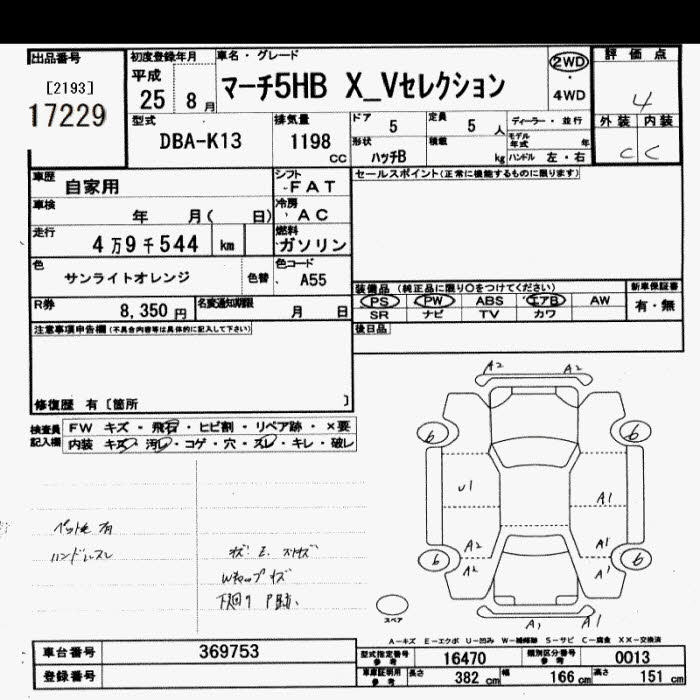 出品番号
[2193]
17229
初度登録年月
平成
25 8月
車名・グレード
マーチ5HB X_Vセレクション
2WD
4WD
評価点
4
型式
DBA-K13
排気量
1198
cc
ドア
5
定員
5 人
ディーラー・並行
モデル年式 年
形状
ハッチB
積載
kg
ハンドル 左・右
外装 内装
C C
車歴
自家用
シフト
FAT
セールスポイント(正常に機能するものに限ります)
車検
年 月( 日)
冷房
AC
走行
4万9千544 km
燃料
ガソリン
色
サンライトオレンジ
色替
色コード
A55
装備品 (純正品に限り○をつけてください)
新車保証書
PS PW ABS エアB AW
有・無
SR ナビ TV カワ
R券
8,350円
名変通知期限
月 日
後日品
注意事項申告欄(不具合内容等は具体的に記入して下さい)
修復歴 有〔箇所 〕
検査員記入欄
FW キズ・飛石・ヒビ割・リペア跡・×要
内装 キズ・汚レ・コゲ・穴・スレ・キレ・破レ
A2 A2
6 6
U1
A1
A2 A1
6 A2 A1 6
A1 A1
スペア
ペット毛 有
ハンドルスレ
A-キズ E-エクボ U-凹み W-補修跡 S-サビ C-腐食 XX-交換済
車台番号
369753
登録番号
型式指定番号
参考
16470
類別区分番号
参考
0013
車庫証明用
参考
長さ 382 cm 幅 166 cm 高さ 151 cm